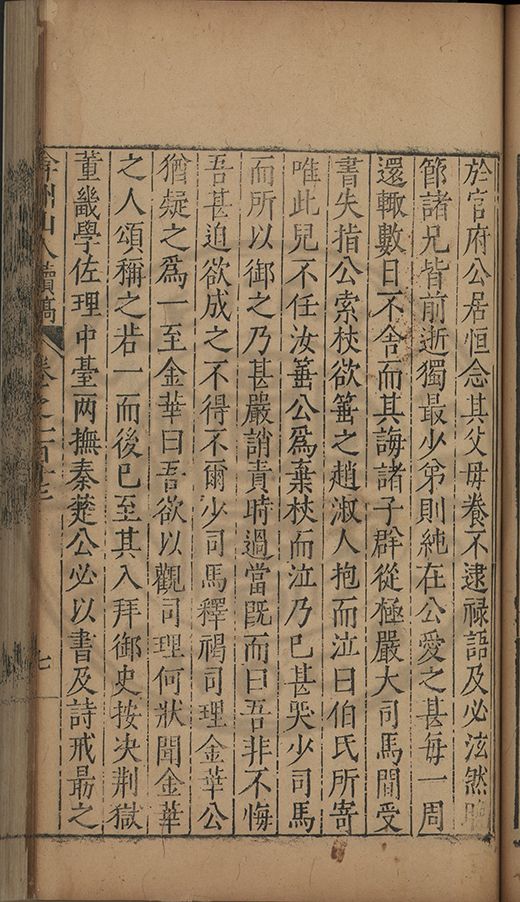 於官府公居恒念其父母養不逮祿語及必泫然
節諸兄皆前逝獨最少弟則純在公愛之甚每一周
還輙數日不舍而其誨諸子群從極嚴大司馬間受
書失指公索杖欲箠之趙淑人抱而泣曰伯氏所寄
唯此兒不任汝箠公爲棄杖而泣乃已甚哭少司馬
而所以御之乃甚嚴誚責時過當既而曰吾非不悔
吾甚迫欲成之不得不爾少司馬釋褐司理金華公
猶疑之爲一至金華曰吾欲以觀司理何狀聞金華
之人頌稱之若一而後已至其入拜御史按决荆獄
董畿學佐理中臺两撫秦楚公必以書及詩戒朂之
弇州山人續稿 卷之一百 七